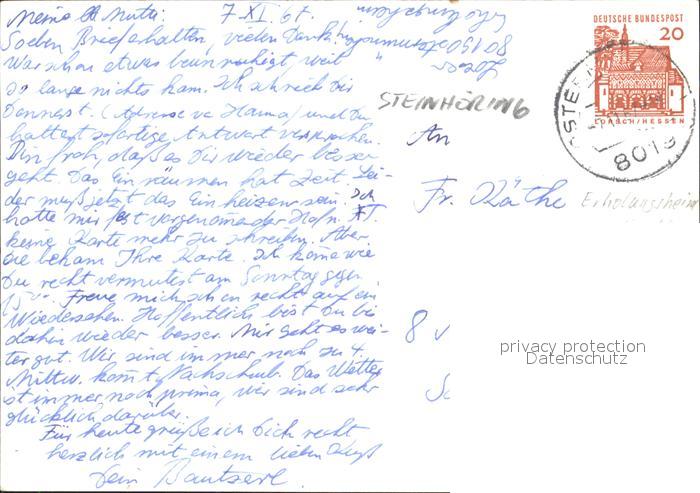 Meine Mutti: 7.XI.67.
Soeben Brief erhalten, vielen Dank!
War schon etwas beunruhigt, weil
so lange nichts kam. Ich schrieb Dir
Donnerst. (Adresse v. Hanna) und Du
hattest sofortige Antwort versprochen.
Bin froh, daß es Dir wieder besser
geht. Das Einräumen hat Zeit. Lei-
der muß jetzt das Einheizen sein. Ich
hatte mir fest vorgenommen der
keine Karte mehr zu schreiben. Aber
sie bekam Ihre Karte. Ich komme wie
Du recht vermutest am Sonntag gegen
15 Freue mich schon recht auf ein
Wiedersehen. Hoffentlich bist Du bis
dahin wieder besser. Mir geht es wei-
ter gut. Wir sind immer noch zu 4.
Mittw. kommt Nachschub. Das Wetter
ist immer noch prima, wir sind sehr
glücklich darüber.
Für heute grüße ich Dich recht
herzlich mit einem lieben Kuß
Dein
DEUTSCHE BUNDESPOST
20
LORSCH/HESSEN
8019
STEINHÖRING
An
Fr. Käthe Erholungsheim
8
privacy protection
Datenschutz